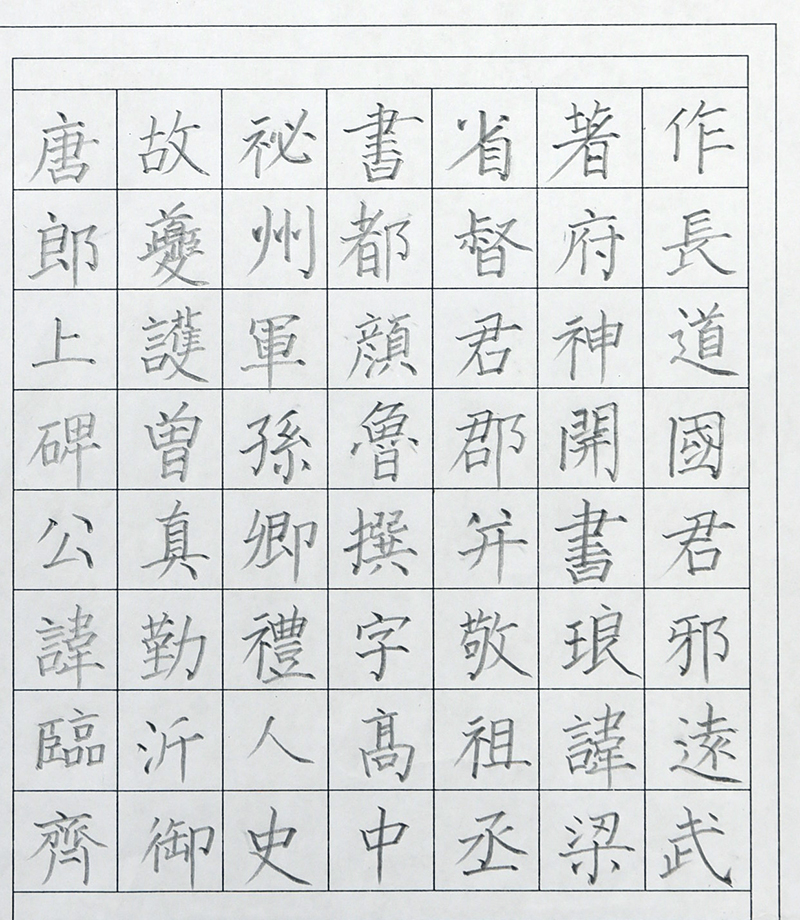 唐故祕書省著作
郎夔州都督府長
上護軍顔君神道
碑曾孫魯郡開國
公真卿撰并書君
諱勤禮字敬琅邪
臨沂人高祖諱遠
齊御史中丞梁武